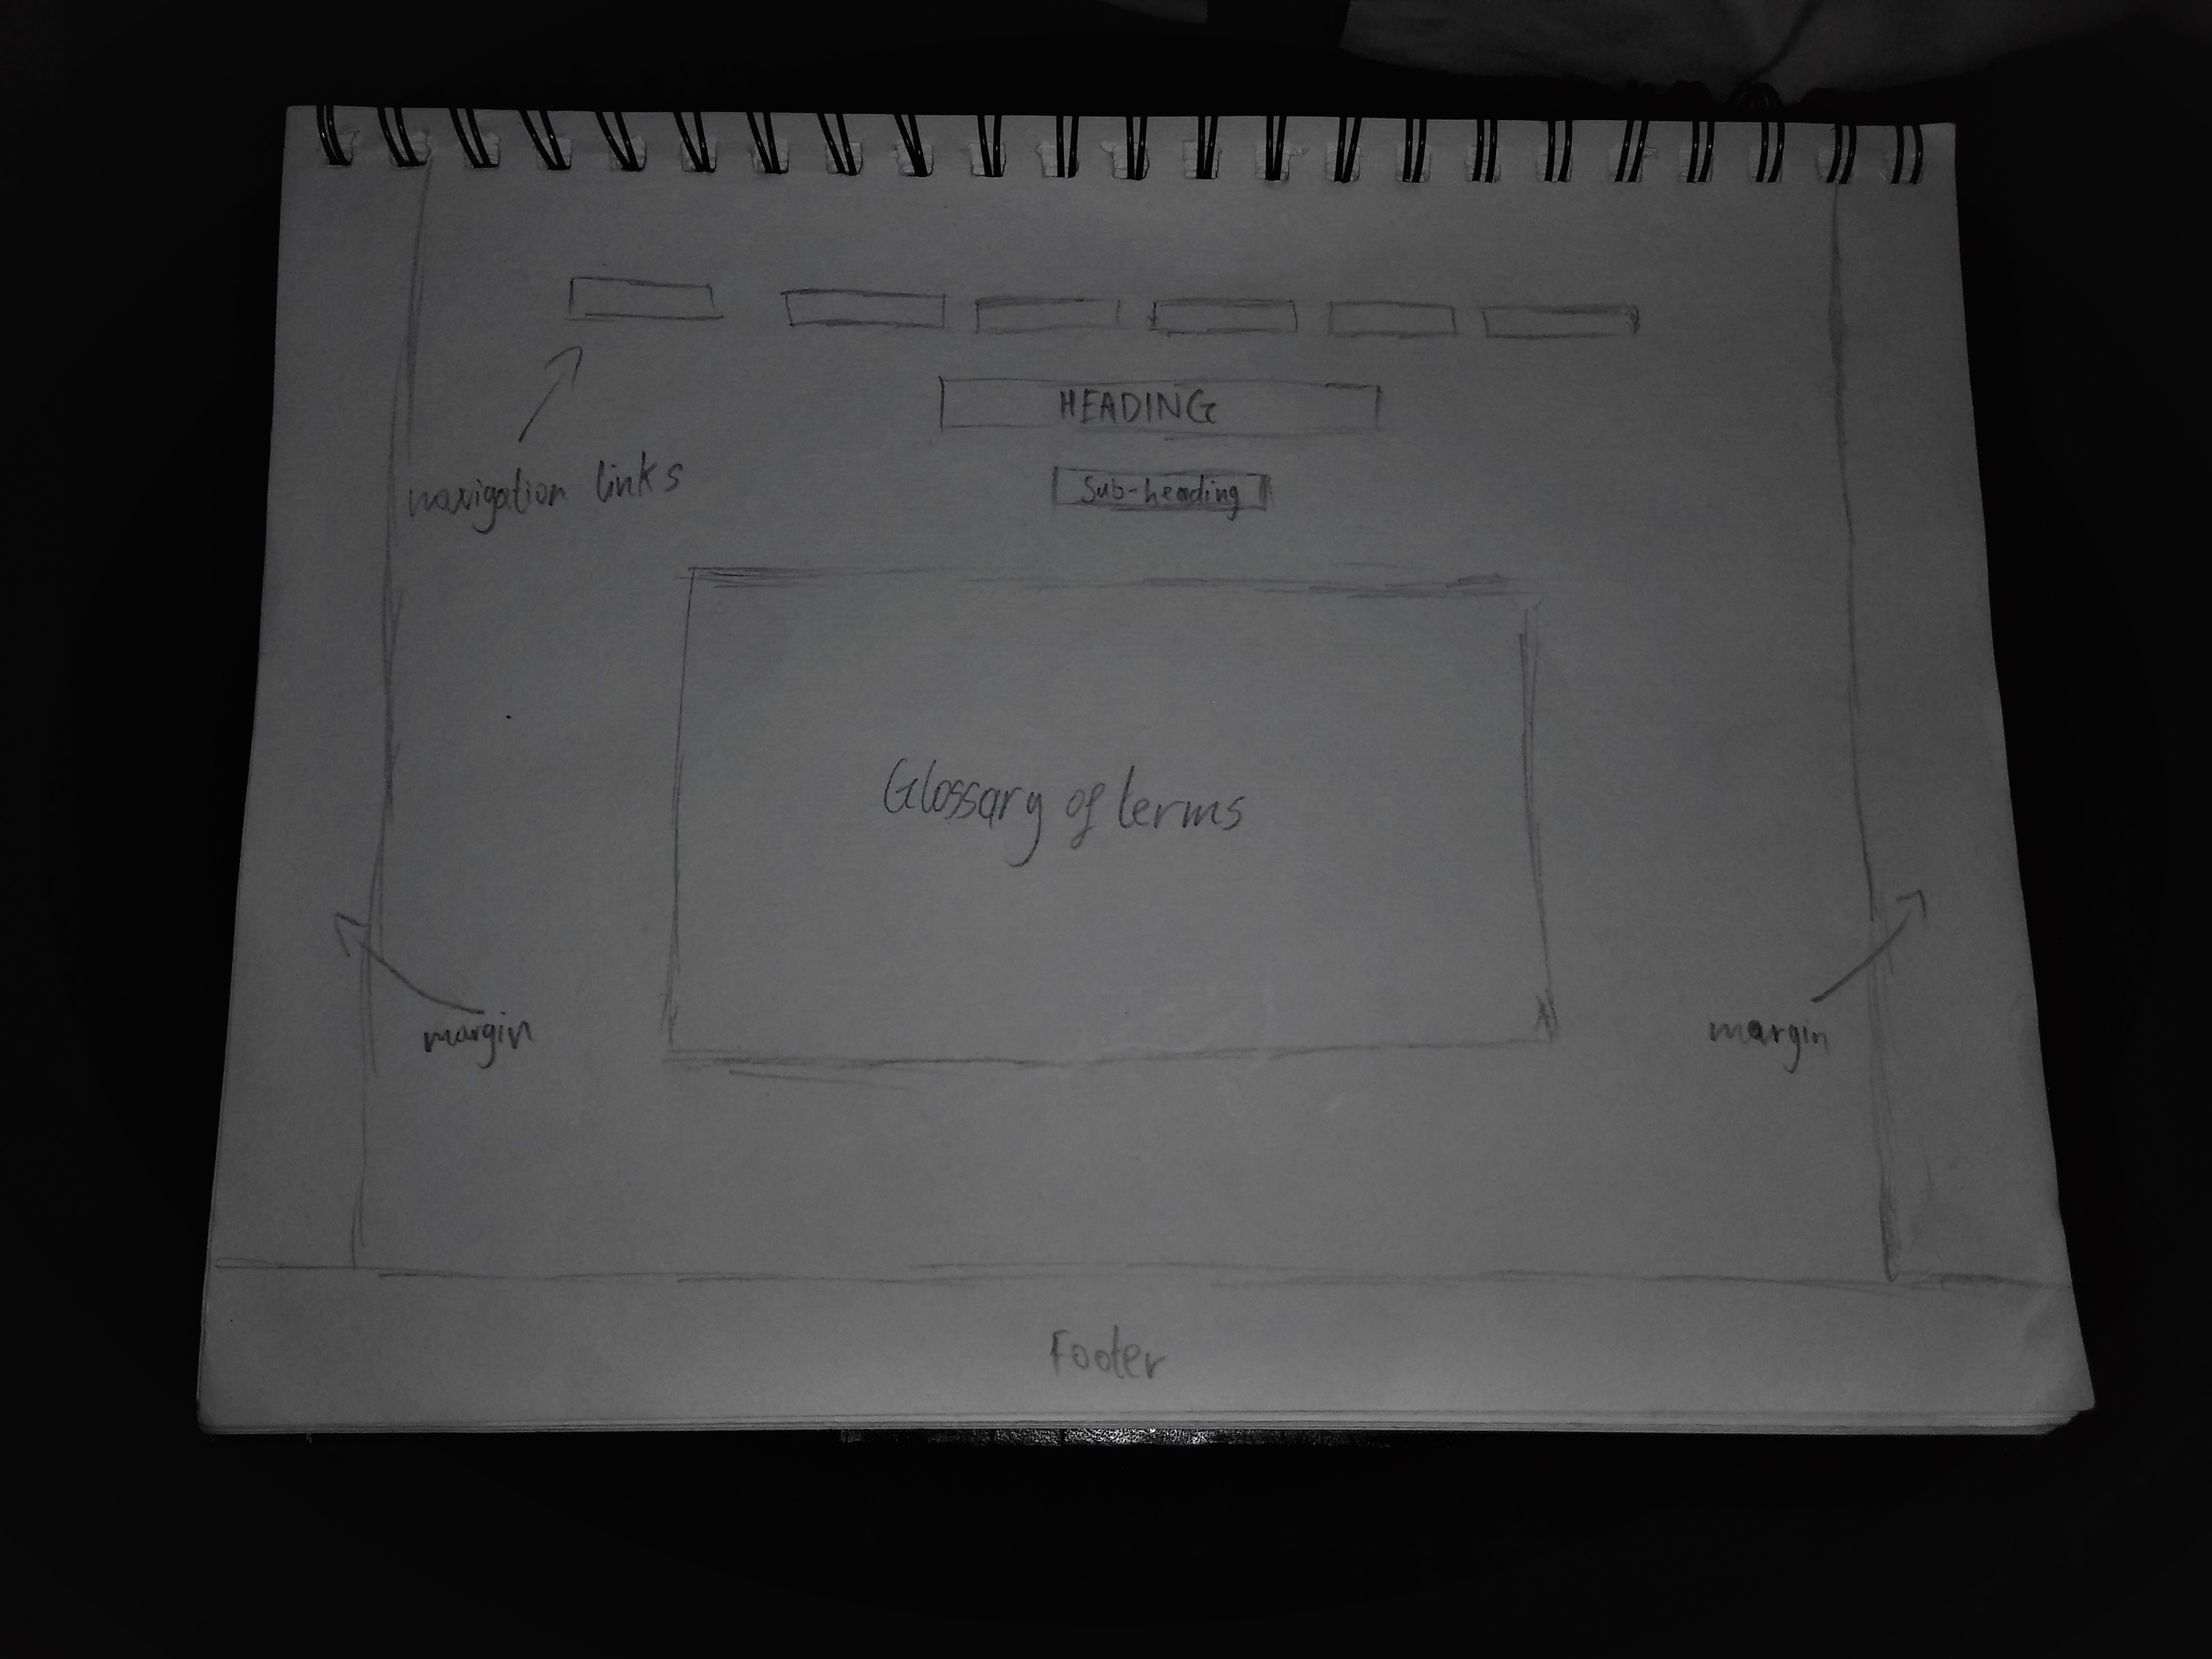 HEADING
navigation links
Sub-heading
Glossary of terms
margin
margin
Footer